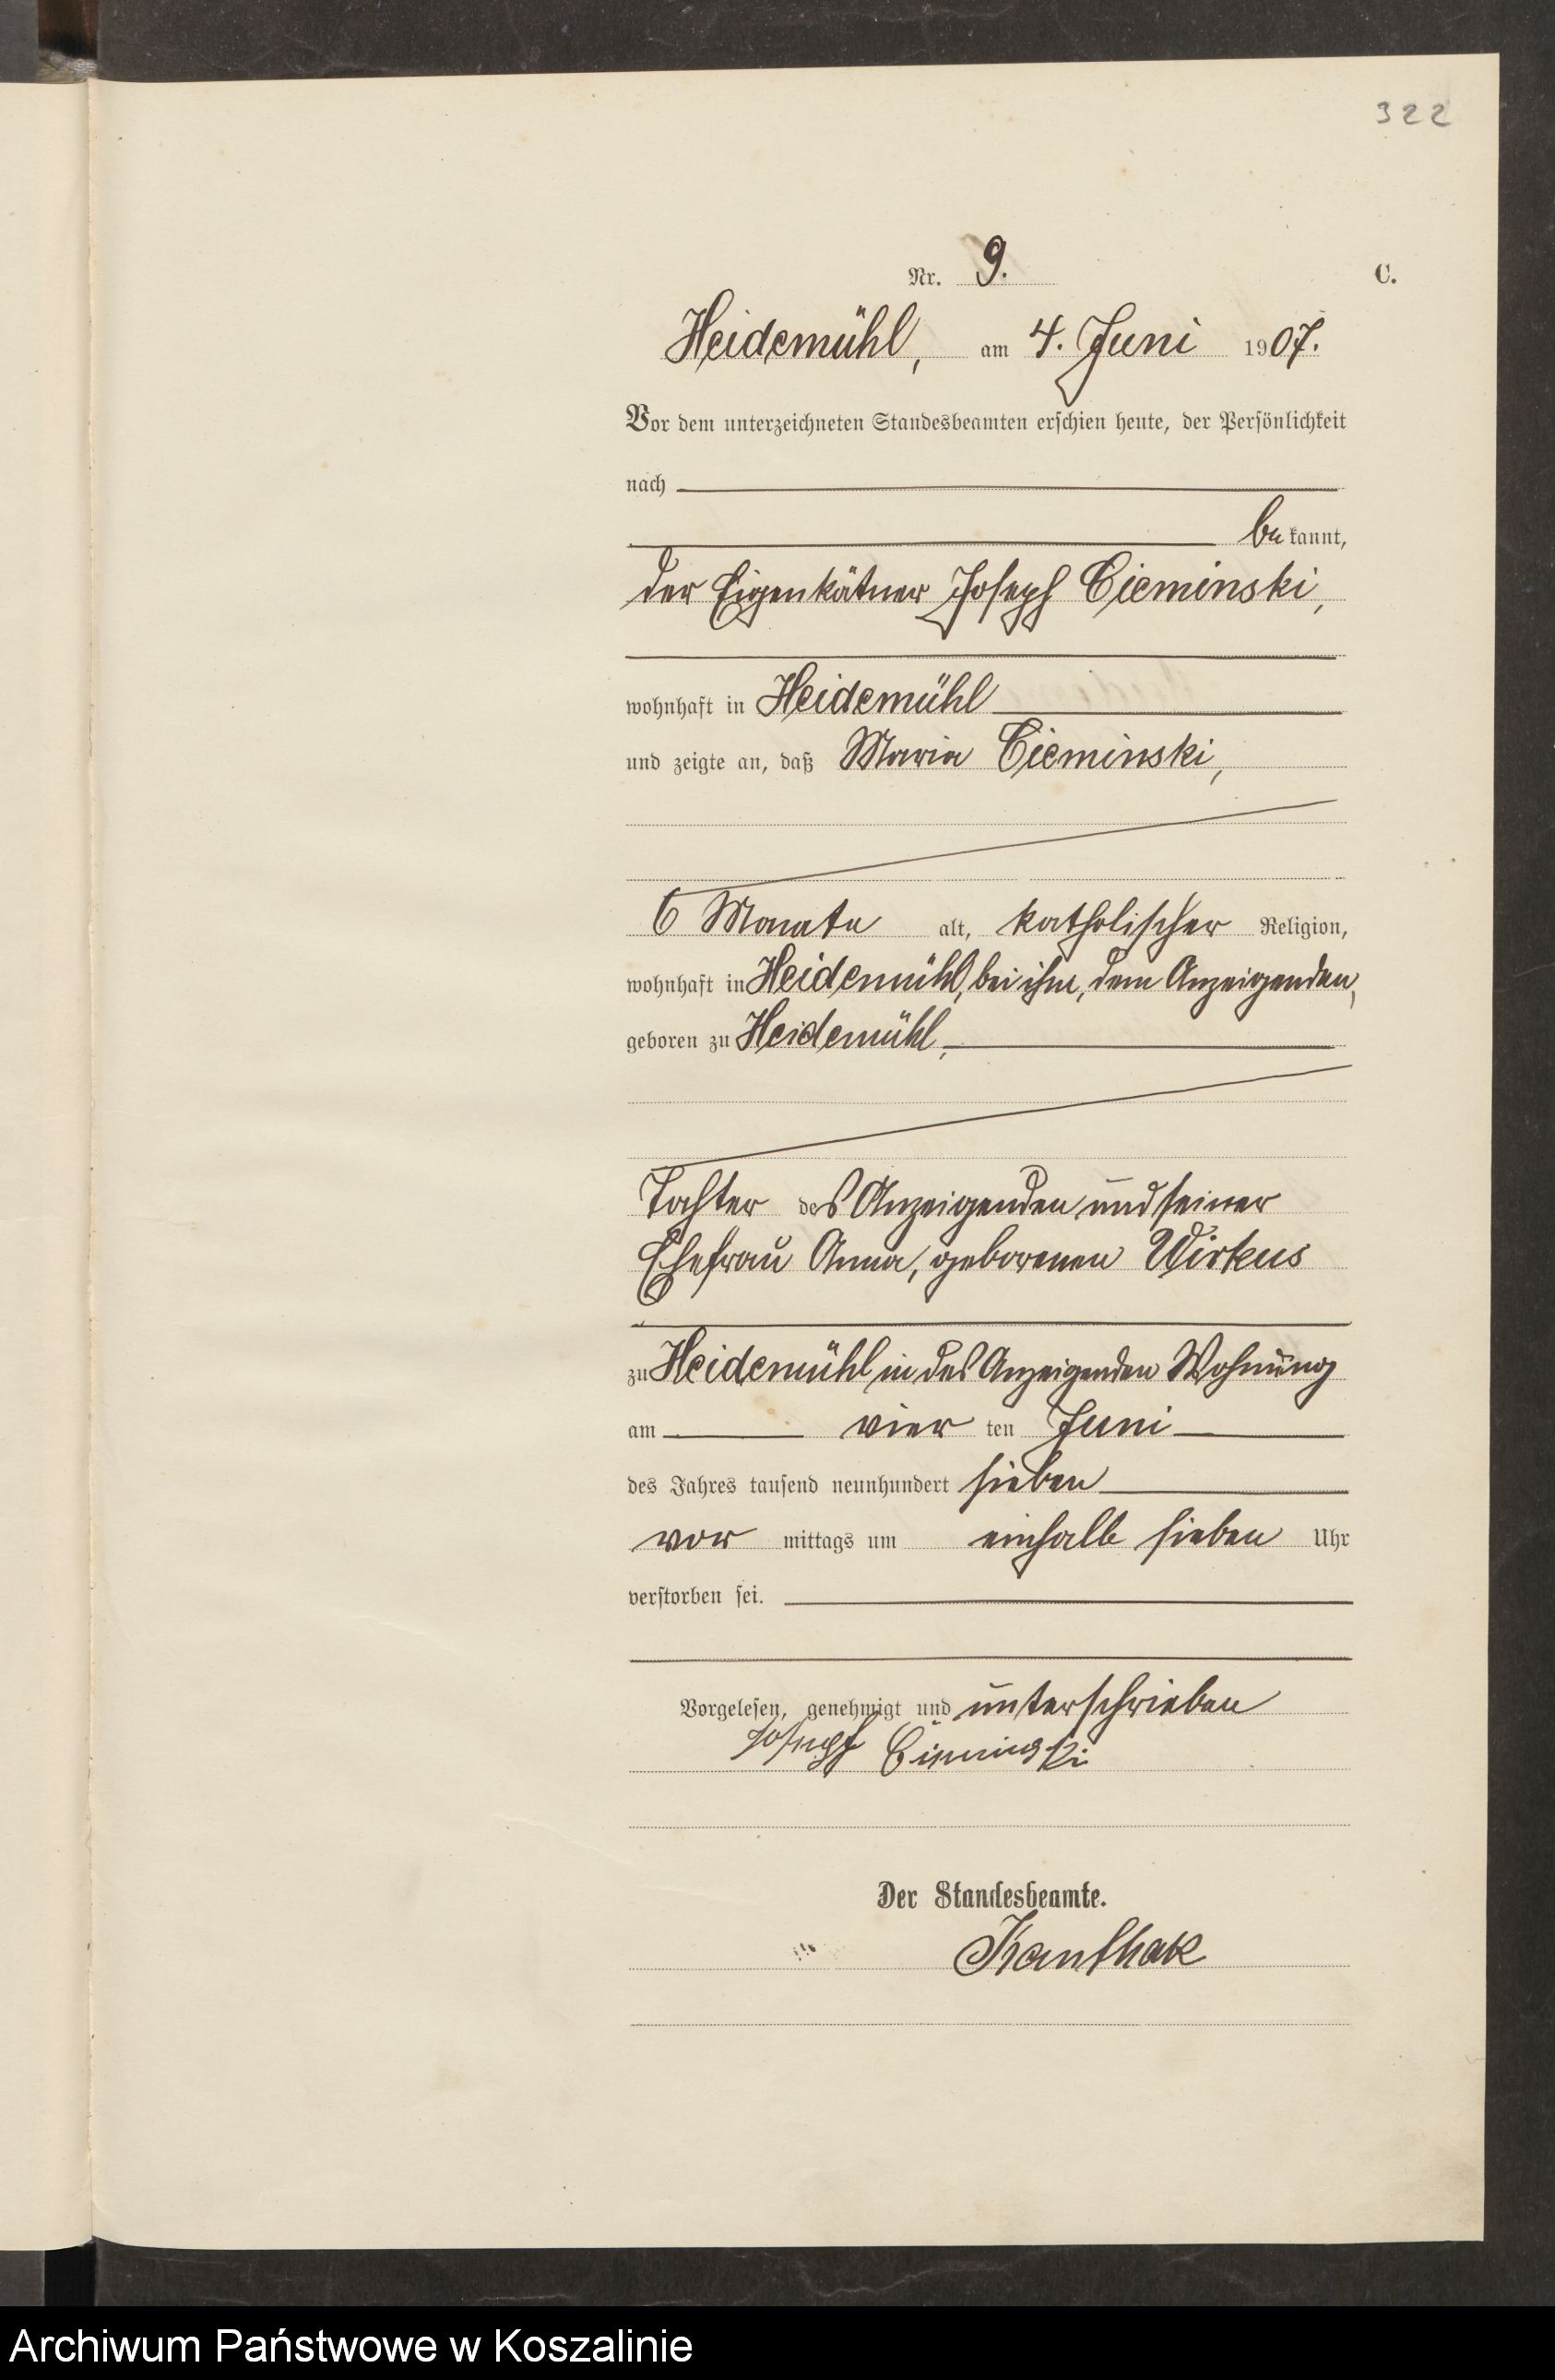 322
Nr. 9. C.
Heidemühl, am 4. Juni 1907.
Vor dem unterzeichneten Standesbeamten erschien heute, der Persönlichkeit
nach
bekannt,
der Eigenkätner Joseph Cieminski,
wohnhaft in Heidemühl
und zeigte an, daß Maria Cieminski,
6 Monate alt, katholischer Religion,
wohnhaft in Heidemühl, bei ihm, dem Anzeigenden,
geboren zu Heidemühl,
Tochter des Anzeigenden und seiner
Ehefrau Anna, geborenen Wirkus
zu Heidemühl in des Anzeigenden Wohnung
am vier ten Juni
des Jahres tausend neunhundert sieben
vor mittags um einhalb sieben Uhr
verstorben sei.
Vorgelesen, genehmigt und unterschrieben
Joseph Cieminski
Der Standesbeamte.
Kanthak
Archiwum Państwowe w Koszalinie